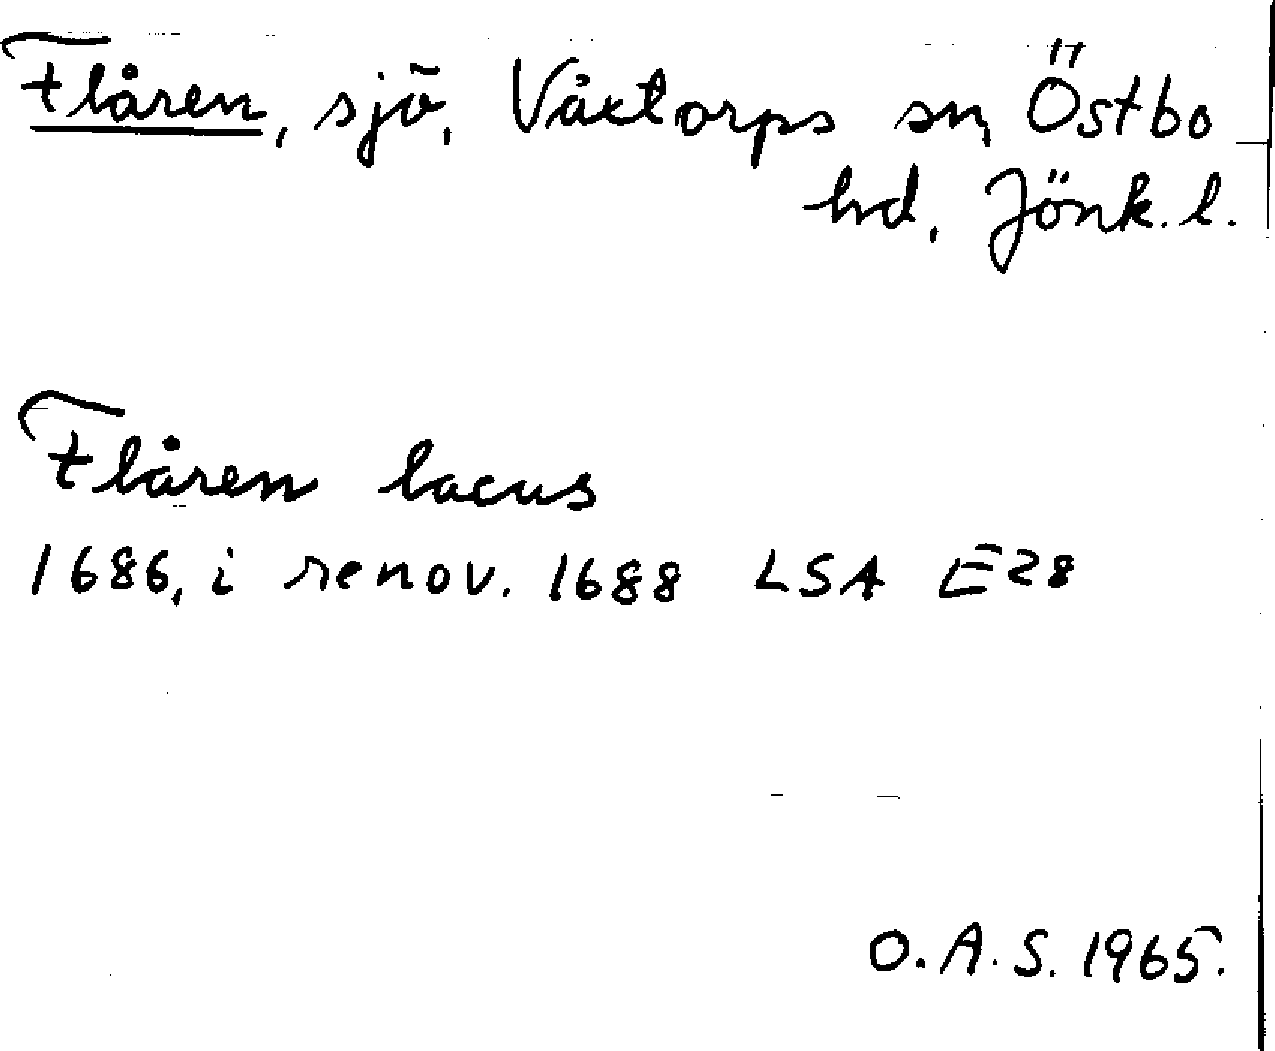 Flåren, sjö, Våxtorps sn, Östbo
hd, Jönk. l.
Flåren lacus
1686, i renov. 1688 LSA E28
O.A.S. 1965.